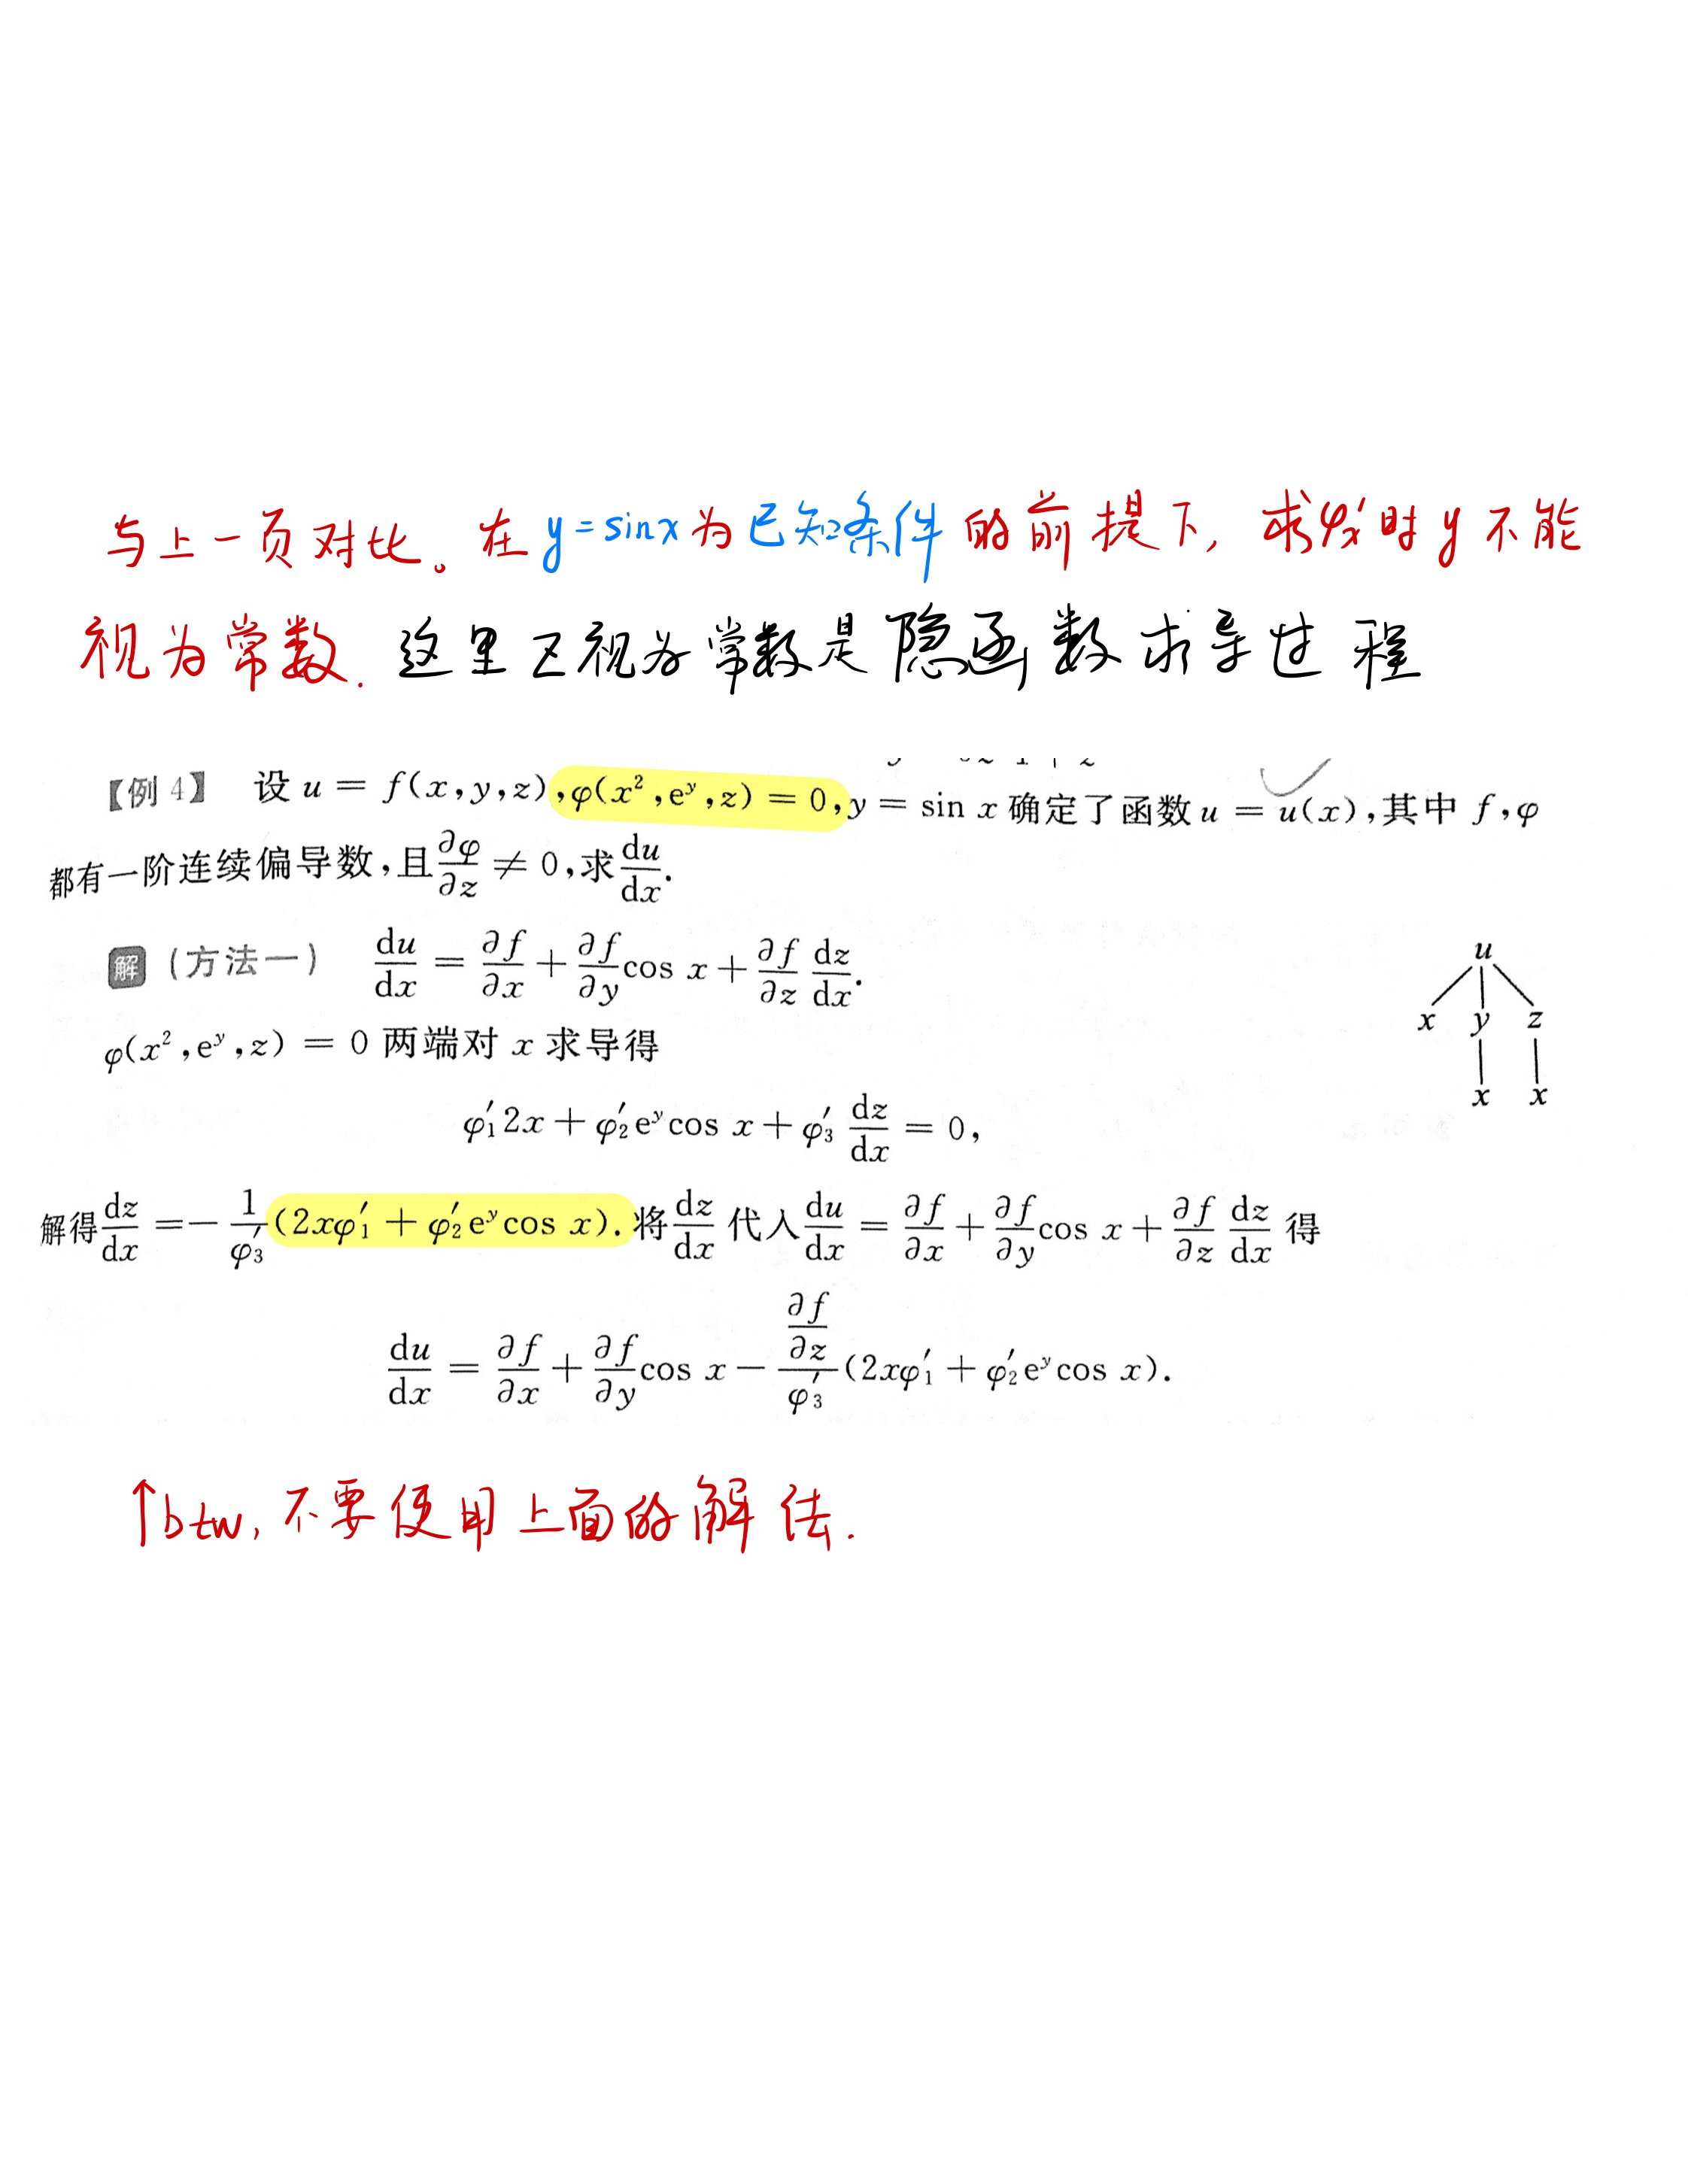 与上一页对比。在 y=sinx 为已知条件的前提下, 求φx′时 y 不能
视为常数. 这里 z 视为常数是隐函数求导过程
【例4】 设 u = f(x,y,z),φ(x²,eʸ,z) = 0,y = sin x 确定了函数 u = u(x),其中 f,φ
都有一阶连续偏导数,且∂φ/∂z ≠ 0,求du/dx.
解 (方法一) du/dx = ∂f/∂x + ∂f/∂y cos x + ∂f/∂z dz/dx.
φ(x²,eʸ,z) = 0 两端对 x 求导得
φ′₁2x + φ′₂eʸcos x + φ′₃ dz/dx = 0,
解得dz/dx = − 1/φ′₃ (2xφ′₁ + φ′₂eʸcos x).将dz/dx 代入du/dx = ∂f/∂x + ∂f/∂y cos x + ∂f/∂z dz/dx 得
du/dx = ∂f/∂x + ∂f/∂y cos x − (∂f/∂z)/φ′₃ (2xφ′₁ + φ′₂eʸcos x).
u
x y z
x x
↑btw, 不要使用上面的解法.